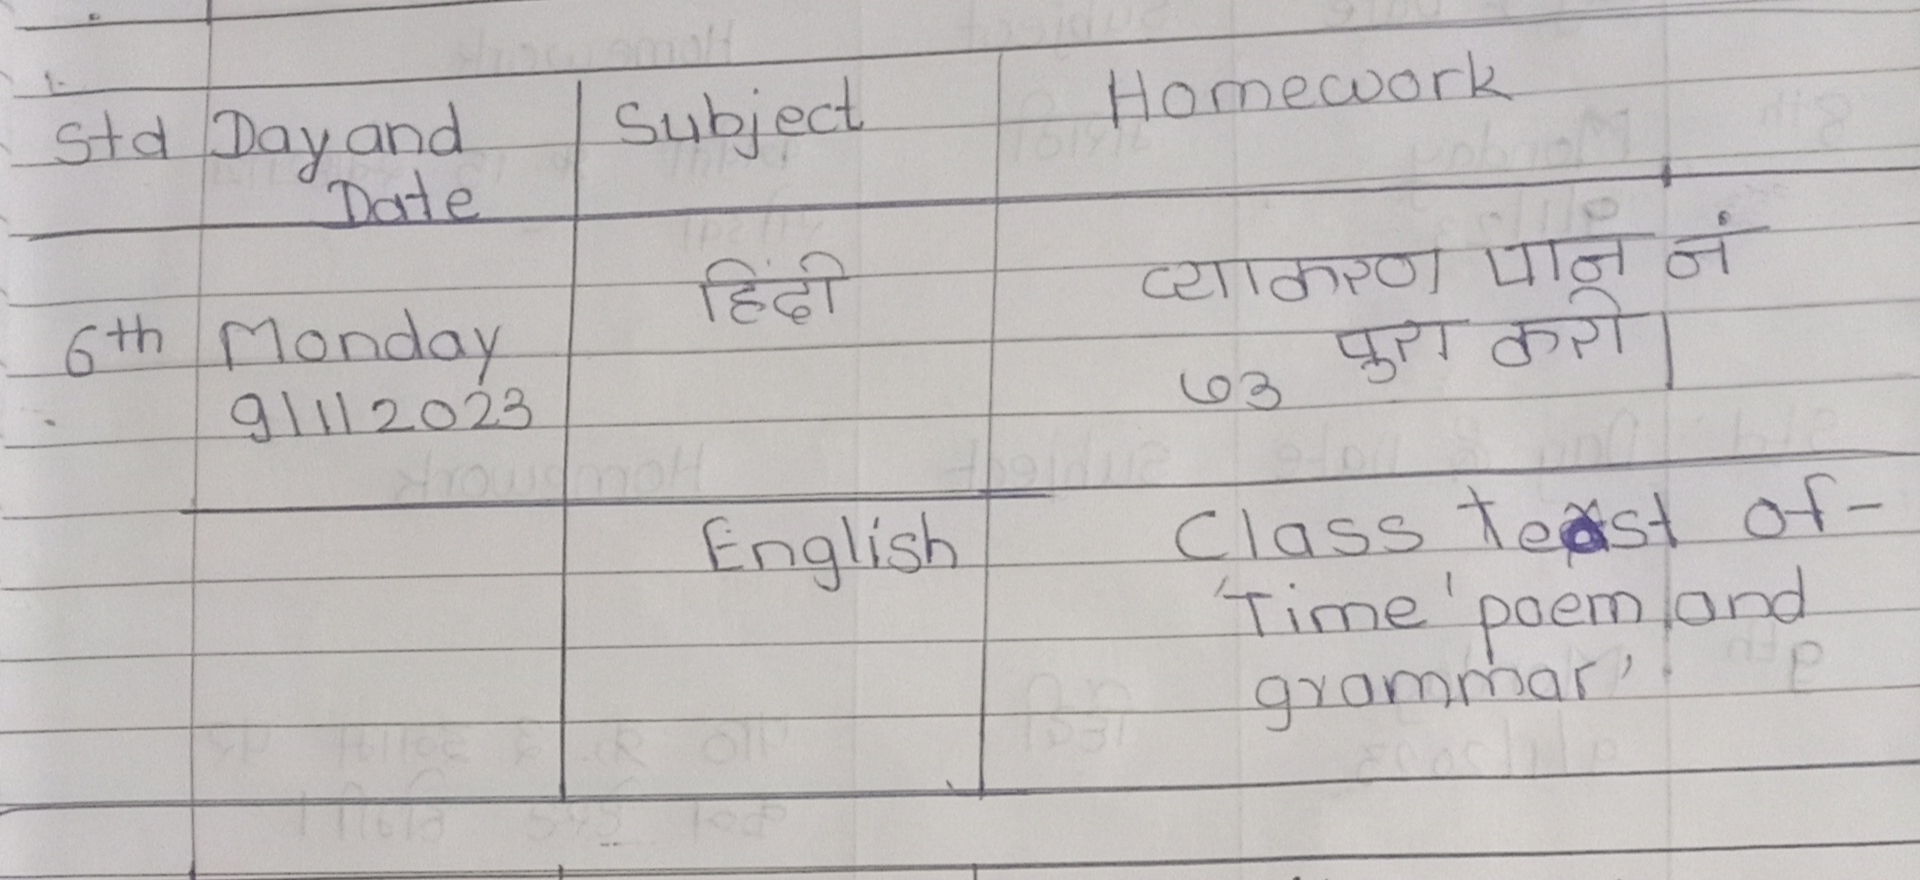 Std Day and Subject Homework
Date
हिंदी व्याकरण पान नं
6th Monday ७३ पुरा करो।
9/1/2023
English Class test of-
'Time' poem and
grammar'